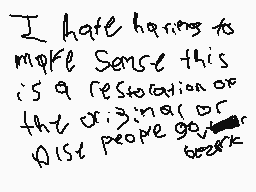 I hate having to
make sense this
is a restoration of
the original or
else people go
bezerk